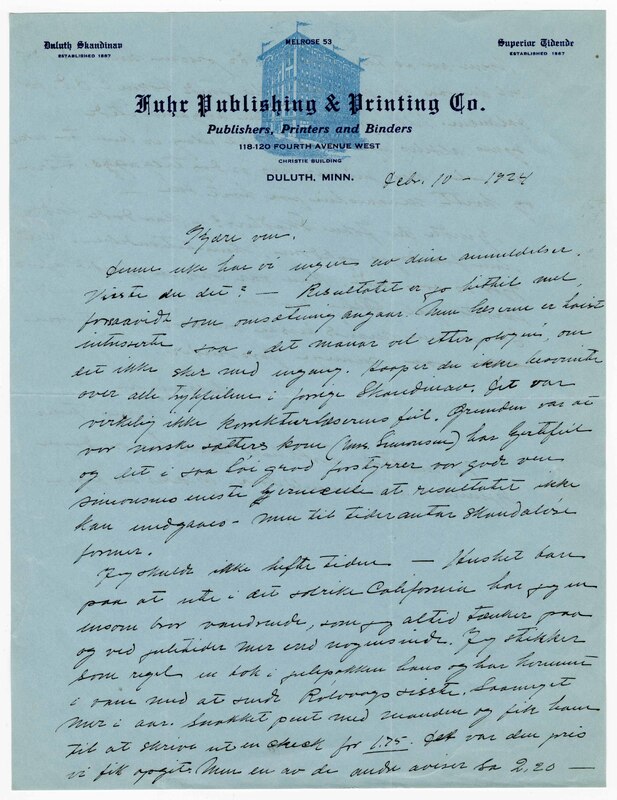 Duluth Skandinav
ESTABLISHED 1887
MELROSE 53
Superior Tidende
ESTABLISHED 1887
Fuhr Publishing & Printing Co.
Publishers, Printers and Binders
118-120 FOURTH AVENUE WEST
CHRISTIE BUILDING
DULUTH, MINN.
Febr. 10 - 1924
Kjære ven!
Denne uke har vi ingen av dine anmeldelser.
Visste du det? — Resultatet er jo hittil nul
forsaavidt som omsetning angaar. Men læserne er høist
intresserte saa "det monar vel etter plogen", om
det ikke sker med engang. Haaper du ikke
over alle trykfeilene i forrige Skandinav. Det var
virkelig ikke korrekturlæserens feil. Grunden var at
vor norske sætters kone (Mrs. Simonson) har
og det i saa høi grad forstyrrer vor gode ven
Simonsons eneste at resultatet ikke
kan undgaaes - men til tider antar skandaløse
former.
Jeg skulde ikke hefte tiden — Husket bare
paa at ute i det solrike California har jeg en
ensom bror vandrende, som jeg altid tænker paa
og ved juletider mer end nogensinde. Jeg stikker
som regel en bok i julepakken hans og har
i vane med at sende Rolvaags sisste. Saameget
mer i aar. Snakket pent med manden og fik ham
til at skrive ut en check for 1.75. Det var den pris
vi fik opgit. Men en av de andre aviser sa 2.20 —